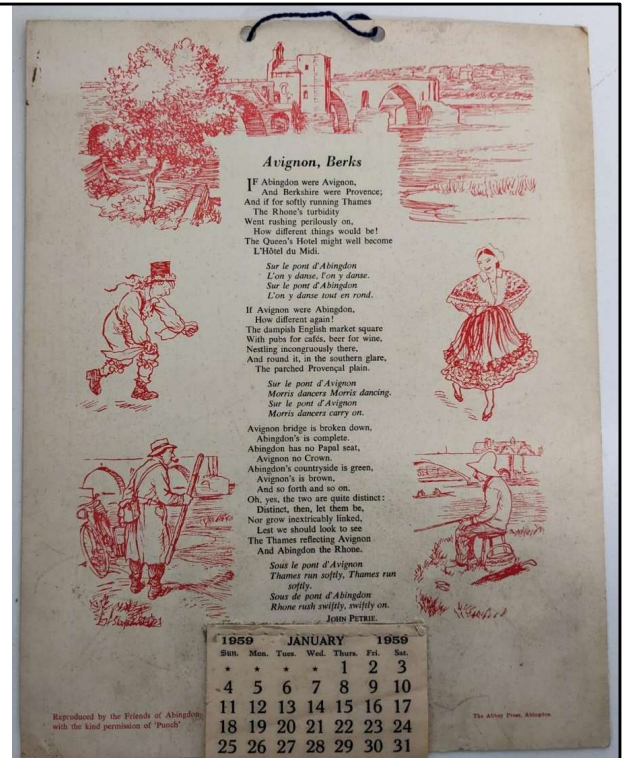 Avignon, Berks
IF Abingdon were Avignon,
And Berkshire were Provence;
And if for softly running Thames
The Rhone's turbidity
Went rushing perilously on,
How different things would be!
The Queen's Hotel might well become
L'Hôtel du Midi.
Sur le pont d'Abingdon
L'on y danse, l'on y danse.
Sur le pont d'Abingdon
L'on y danse tout en rond.
If Avignon were Abingdon,
How different again!
The dampish English market square
With pubs for cafés, beer for wine,
Nestling incongruously there,
And round it, in the southern glare,
The parched Provençal plain.
Sur le pont d'Avignon
Morris dancers Morris dancing.
Sur le pont d'Avignon
Morris dancers carry on.
Avignon bridge is broken down,
Abingdon's is complete.
Abingdon has no Papal seat,
Avignon no Crown.
Abingdon's countryside is green,
Avignon's is brown,
And so forth and so on.
Oh, yes, the two are quite distinct:
Distinct, then, let them be,
Nor grow inextricably linked,
Lest we should look to see
The Thames reflecting Avignon
And Abingdon the Rhone.
Sous le pont d'Avignon
Thames run softly, Thames run
softly.
Sous de pont d'Abingdon
Rhone rush swiftly, swiftly on.
JOHN PETRIE.
1959 JANUARY 1959
Sun. Mon. Tues. Wed. Thurs. Fri. Sat.
* * * * 1 2 3
4 5 6 7 8 9 10
11 12 13 14 15 16 17
18 19 20 21 22 23 24
25 26 27 28 29 30 31
Reproduced by the Friends of Abingdon
with the kind permission of 'Punch'
The Abbey Press, Abingdon.